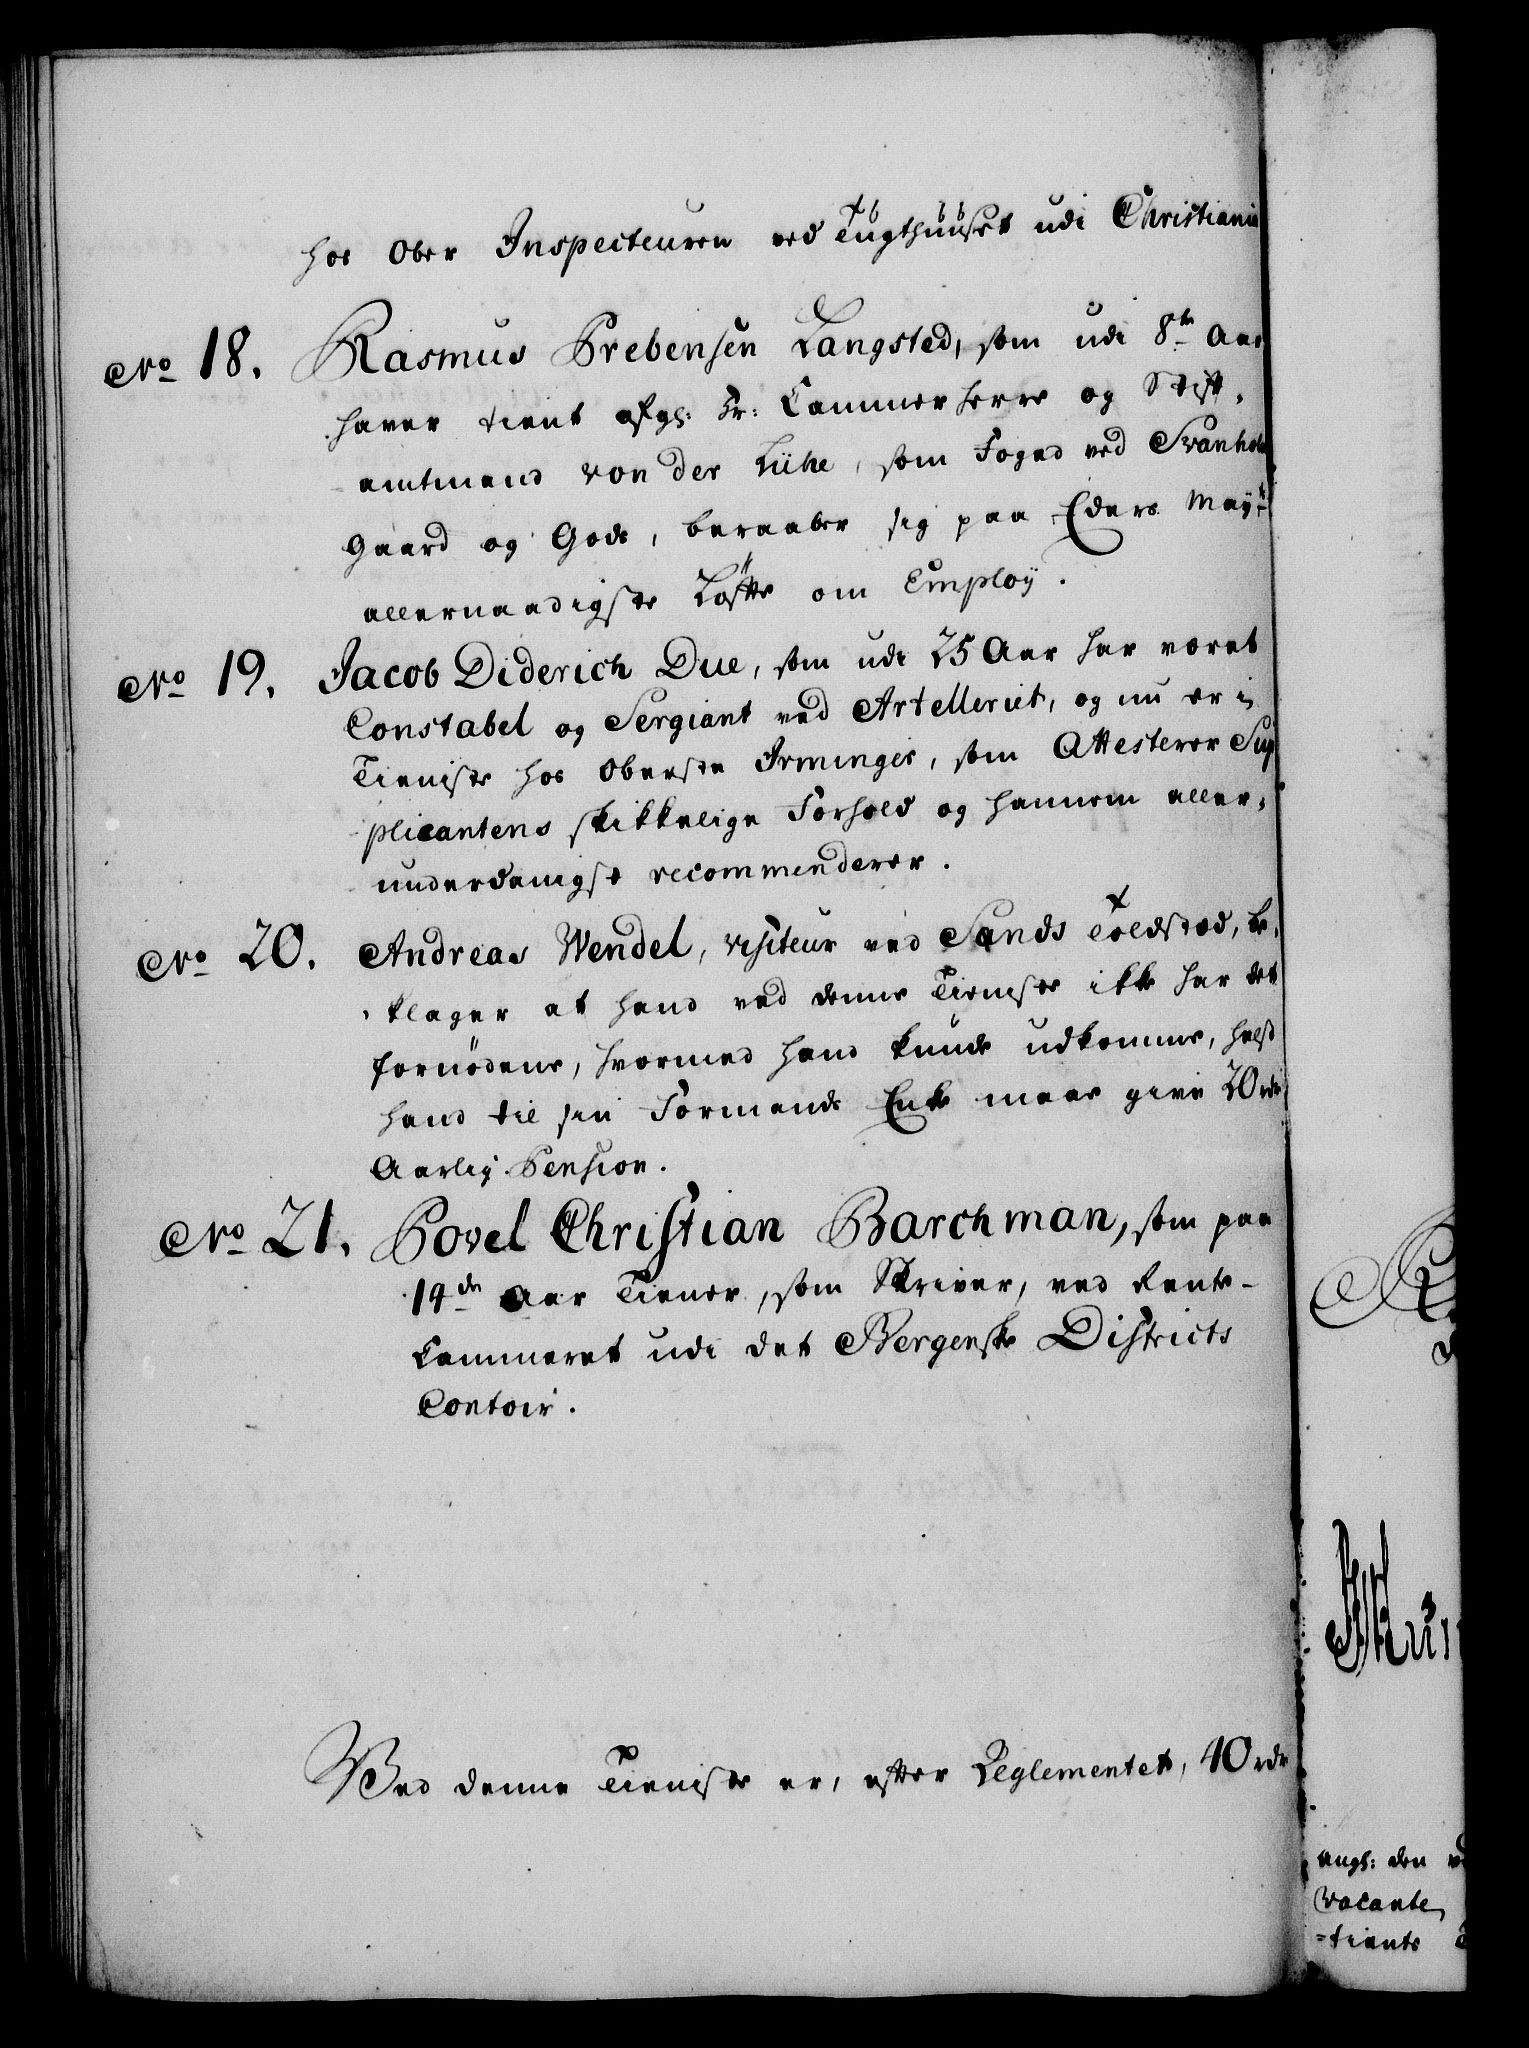 hos Ober Inspecteuren ved Tugthuuset udi Christiania
No 18. Rasmus Prebensen Langsted, som udi 8te Aar
haver tient afgl: Hr: Cammerherre og Stift-
amtmand von der Lühe, som Foged ved Svanholm
Gaard og Gods, beraaber sig paa Eders Mayts
allernaadigste Løfte om Employ.
No 19. Jacob Diderich Due, som udi 25 Aar har været
Constabel og Sergiant ved Artelleriet, og nu er i
Tieniste hos Oberste Irminger, som Attesterer Sup
plicantens skikkelige Forhold og hannem aller-
underdanigst recommenderer.
No 20. Andreas Wendel, visiteur ved Sands Toldsted, be-
klager at hand ved denne Tieniste ikke har det
fornødene, hvormed hand kunde udkomme, helst
hand til sin Formands Enke maae give 20 rdr
Aarlig Pension.
No 21. Povel Christian Barchman, som paa
14de Aar Tiener, som Skriver, ved Rente-
Cammeret udi det Bergenske Districts
Contoir.
Ved denne Tieniste er, efter Reglementet, 40 rdr
angl: den
vacante
-tients